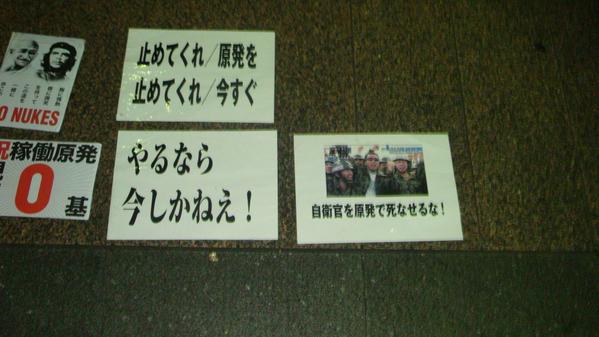 NO NUKES
祝稼働原発
0基
止めてくれ/原発を
止めてくれ/今すぐ
やるなら
今しかねえ!
自衛官を原発で死なせるな!